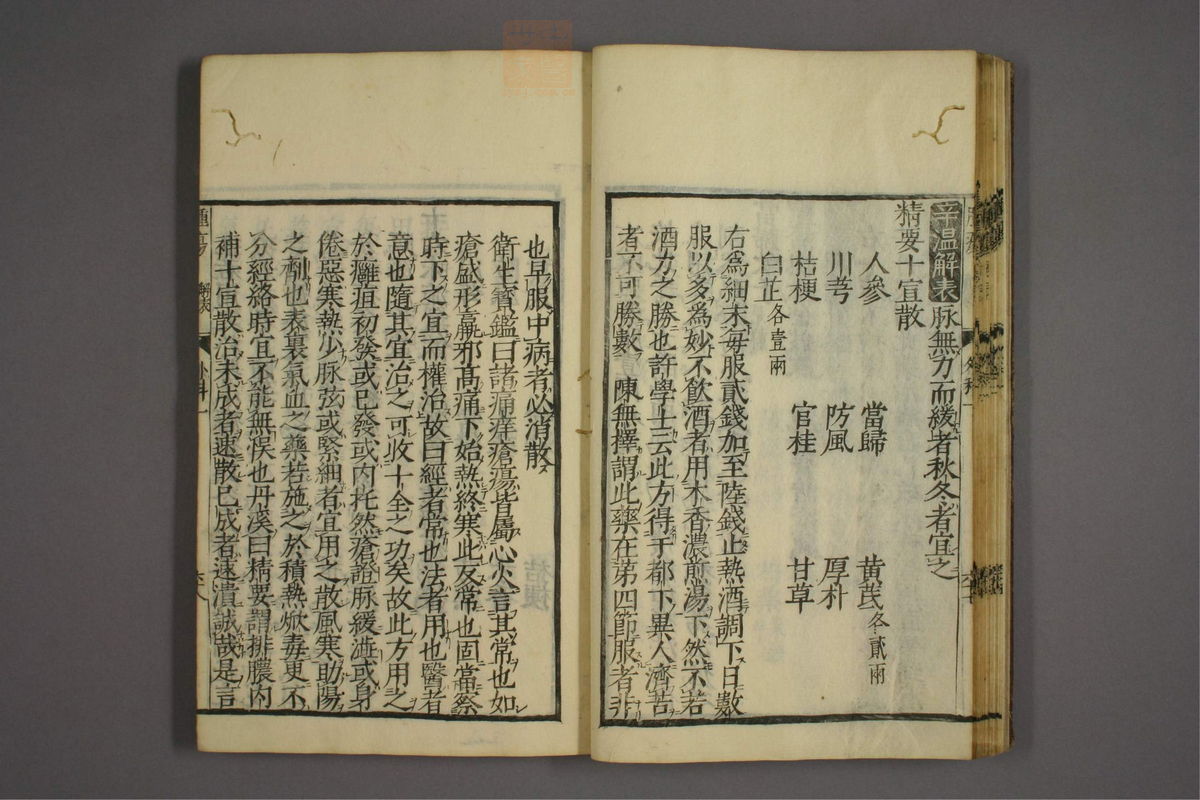 辛温解表脉無力而緩者秋冬者宜之
精要十宣散
人參 當歸 黄芪各貳兩
川芎 防風 厚朴
桔梗 官桂 甘草
白芷各壹兩
右為細末每服貳錢加至陸錢止熱酒調下日數
服以多為妙不飲酒者用木香濃煎湯下然不若
酒力之勝也許學士云此方得于都下異人濟苦
者不可勝數 陳無擇謂此藥在第四節服者非
也早服中病者必消散
衛生寶鑑曰諸痛痒瘡瘍皆屬心火言其常也如
瘡盛形羸邪高痛下始熱終寒此反常也固當察
時下之宜而權治故曰經者常也法者用也醫者
意也隨其宜治之可收十全之功矣故此方用之
於癰疽初發或已發或内托然瘡證脉緩澁或身
倦惡寒熱少脉弦或緊細者宜用之散風寒助陽
之劑也表裏氣血之藥若施之於積熱焮毒更不
分經絡時宜不能無悞也丹溪曰精要謂排膿内
補十宣散治未成者速散已成者速潰誠哉是言